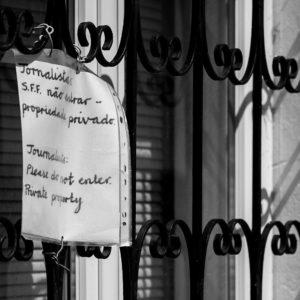 Jornalistas:
S.F.F. não entrar –
propriedade privada.
Journalists:
Please do not enter.
Private property